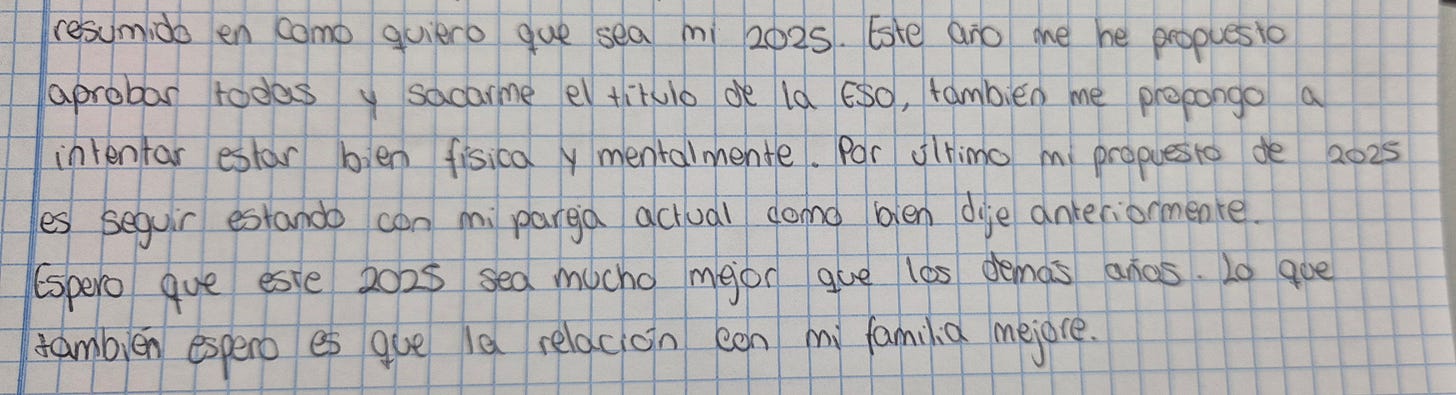 resumido en como quiero que sea mi 2025. Este año me he propuesto
aprobar todas y sacarme el título de la ESO, tambien me propongo a
intentar estar bien física y mentalmente. Por último mi propuesto de 2025
es seguir estando con mi pareja actual como bien dije anteriormente.
Espero que este 2025 sea mucho mejor que los demás años. Lo que
también espero es que la relación con mi familia mejore.